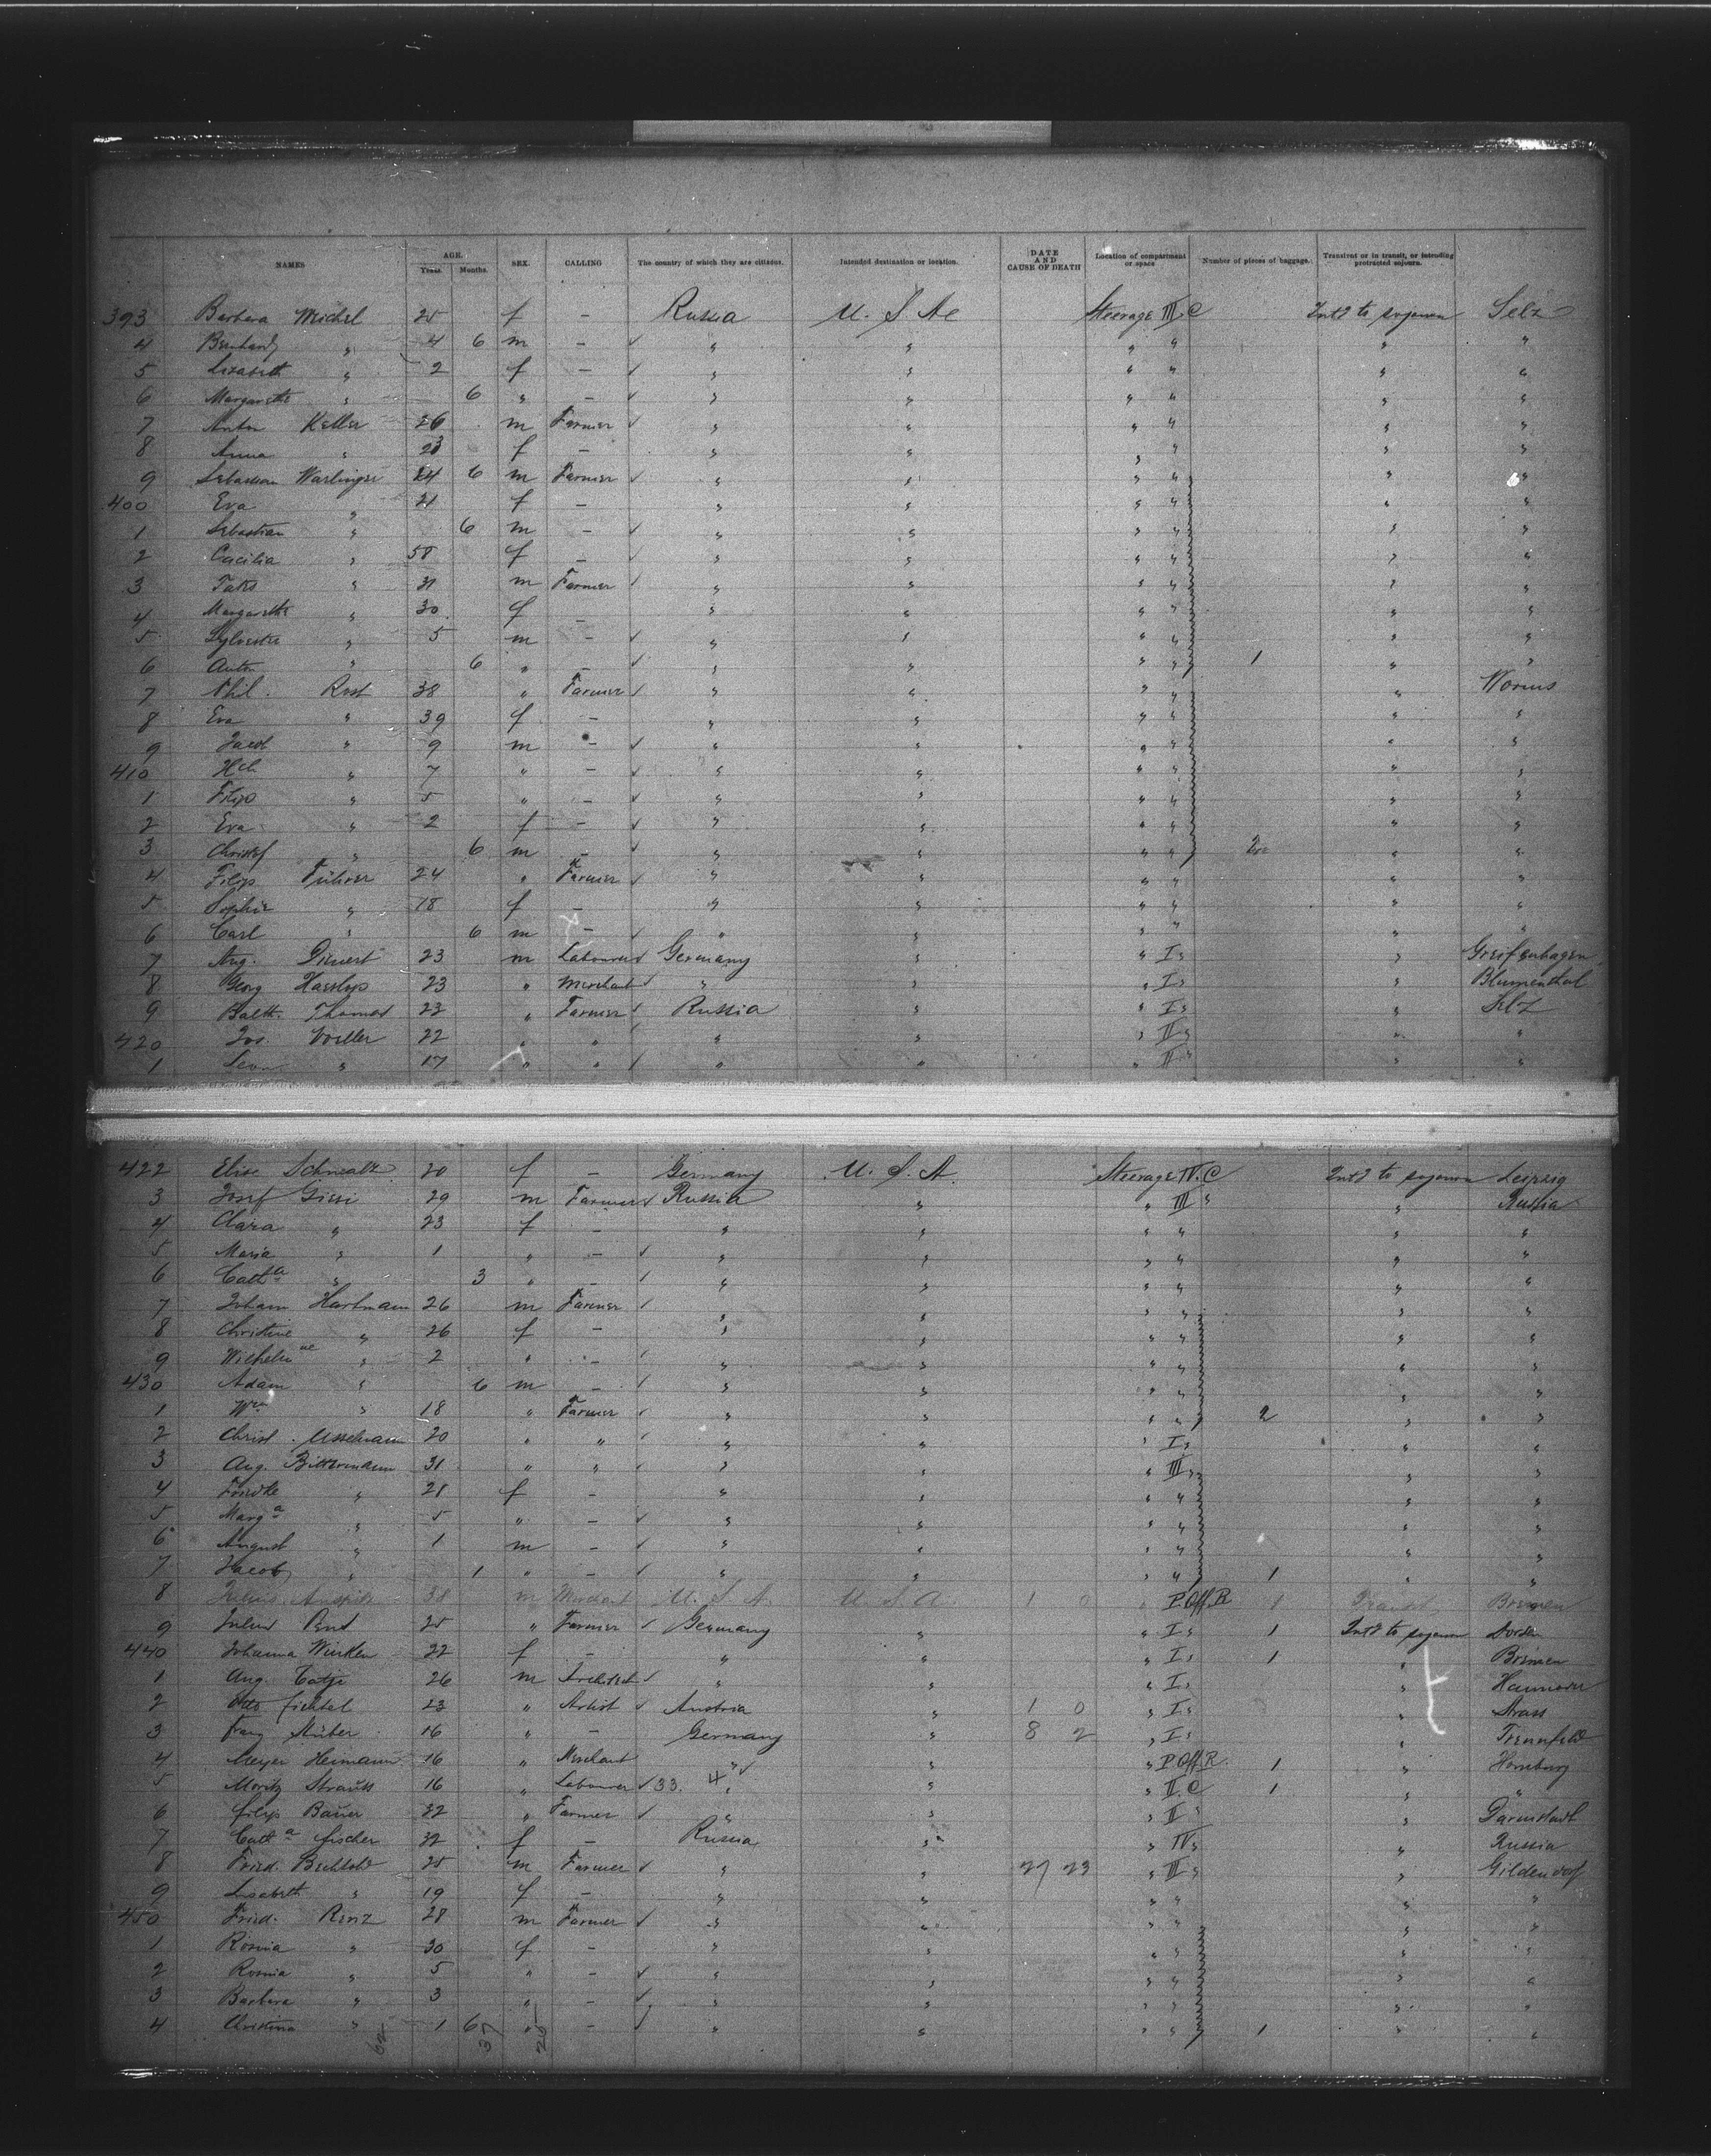 NAMES AGE. Years. Months. SEX. CALLING The country of which they are citizens. Intended destination or location. DATE AND CAUSE OF DEATH Location of compartment or space Number of pieces of baggage. Transient or in transit, or intending protracted sojourn.
393 Barbara Michel 25 f – Russia U. S. A. Steerage III. C Int'd to sojourn Selz
4 " 4 6 m – " " " " " "
5 " 2 f – " " " " " "
6 Margarethe " 6 " – " " " " " "
7 Anton Keller 26 m Farmer " " " " " "
8 Anna " 23 f – " " " " "
9 24 6 m Farmer " " " " " "
400 Eva " 21 f – " " " " " "
1 Sebastian " 6 m – " " " " " "
2 Cacilia " 58 f – " " " " " "
3 " 31 m Farmer " " " " " "
4 Margarethe " 30 f – " " " " " "
5 " 5 m – " " " " " "
6 Anton " 6 " – " " " " 1 " "
7 Phil. Rost 38 " Farmer " " " " " Worms
8 Eva " 39 f – " " " " " "
9 Jacob " 9 m – " " " " " "
410 Hch " 7 " – " " " " " "
1 Filip " 5 " – " " " " " "
2 Eva " 2 f – " " " " " "
3 Christof " 6 m – " " " " 2 " "
4 Filip Führer 24 " Farmer " " " " " "
5 Sophie " 18 f – " " " " " "
6 Carl " 6 m – " " " " " "
7 Aug. 23 m Labourer Germany " " I " " Greifenhagen
8 Georg 23 " Merchant " " " I " " Blumenthal
9 Balth. Thomas 22 " Farmer Russia " " I " " Selz
420 Jos. 22 " " " " " II " " "
1 " 17 " " " " " II " " "
422 Elise 20 f – Germany U. S. A. Steerage IV. C Int'd to sojourn Leipzig
3 Josef 29 m Farmer Russia " " III " " Russia
4 Clara " 23 f – " " " " " "
5 Maria " 1 " – " " " " " "
6 Cath.a " 3 " – " " " " " "
7 Johann Hartmann 26 m Farmer " " " " " "
8 Christine " 26 f – " " " " " "
9 Wilhelmine " 2 " – " " " " " "
430 Adam " 6 m – " " " " " "
1 Wm " 18 " Farmer " " " " 2 " "
2 Christ. Usselmann 20 " " " " " I " " "
3 Aug. Bittermann 31 " " " " " III " " "
4 " 21 f – " " " " " "
5 Marg.a " 5 " – " " " " " "
6 August " 1 m – " " " " " "
7 Jacob " 1 " – " " " " 1 " "
8 Julius 38 m Merchant U. S. A. U. S. A. 1 0 " P. Off. R 1 Transit Bremen
9 Julius 25 " Farmer Germany " " I " 1 Int'd to sojourn
440 Johanna Winken 22 f – " " " I " 1 " Bremen
1 Aug. 26 m Architect " " " I " " Hannover
2 Otto Fichtel 23 " Artist Austria " 1 0 " I " " Strass
3 Franz 16 " – Germany " 8 2 " I " " Trennfeld
4 Meyer Heimann 16 " Merchant " " " P. Off. R. 1 " Homburg
5 Moritz Strauss 16 " Labourer 33. 4 " " " II. C 1 " "
6 Filip Bauer 32 " Farmer " " " II " " Darmstadt
7 Cath.a Fischer 32 f – Russia " " IV " " Russia
8 Fried. Bechtold 25 m Farmer " " 27 23 " III " " Gildendorf
9 Lisabeth " 19 f – " " " " " "
450 Fried. Renz 28 m Farmer " " " " " "
1 Rosina " 30 f – " " " " " "
2 Rosina " 5 " – " " " " " "
3 Barbara " 3 " – " " " " " "
4 Christina " 1 6 " – " " " " 1 " "
62 37 25